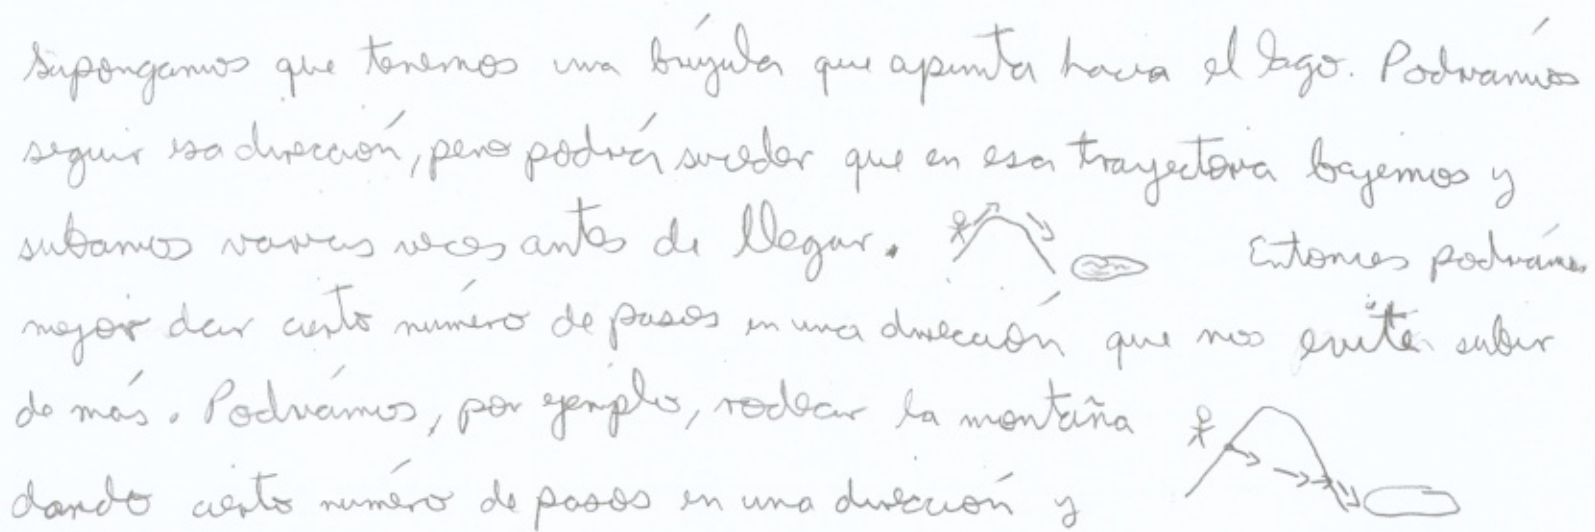 Supongamos que tenemos una brújula que apunta hacia el lago. Podríamos
seguir esa dirección, pero podría suceder que en esa trayectoria bajemos y
subamos varias veces antes de llegar. Entonces podríamos
mejor dar cierto número de pasos en una dirección que nos evite subir
de más. Podríamos, por ejemplo, rodear la montaña
dando cierto número de pasos en una dirección y